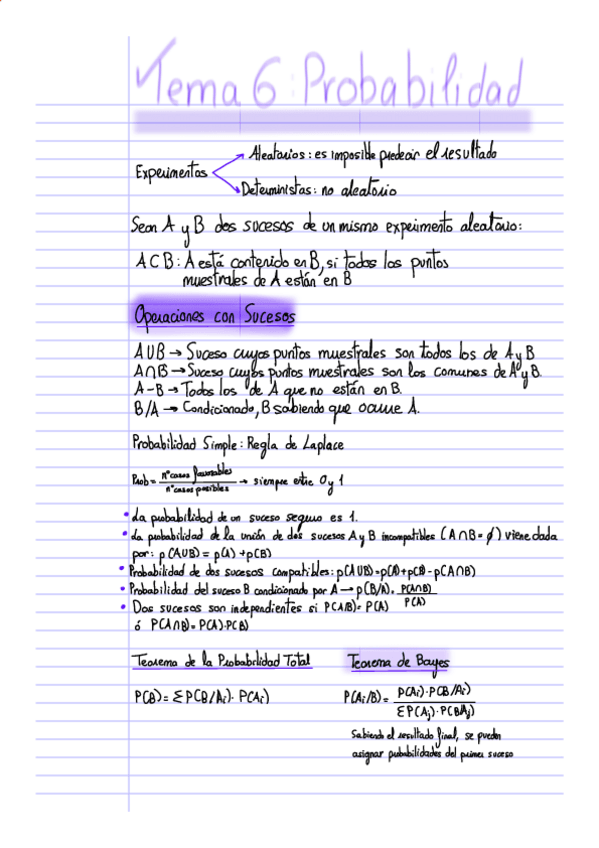 Tema 6: Probabilidad
Experimentos
Aleatorios: es imposible predecir el resultado
Deterministas: no aleatorio
Sean A y B dos sucesos de un mismo experimento aleatorio:
A ⊂ B: A está contenido en B, si todos los puntos
muestrales de A están en B
Operaciones con Sucesos
A∪B → Suceso cuyos puntos muestrales son todos los de A y B
A∩B → Suceso cuyos puntos muestrales son los comunes de A y B.
A-B → Todos los de A que no están en B.
B/A → Condicionado, B sabiendo que ocurre A.
Probabilidad Simple: Regla de Laplace
Prob = nº casos favorables / nº casos posibles → siempre entre 0 y 1
• La probabilidad de un suceso seguro es 1.
• La probabilidad de la unión de dos sucesos A y B incompatibles (A∩B = ∅) viene dada
por: p(A∪B) = p(A) + p(B)
• Probabilidad de dos sucesos compatibles: p(A∪B) = p(A) + p(B) - p(A∩B)
• Probabilidad del suceso B condicionado por A → p(B/A) = P(A∩B) / P(A)
• Dos sucesos son independientes si P(A/B) = P(A)
ó P(A∩B) = P(A)·P(B)
Teorema de la Probabilidad Total
P(B) = Σ P(B/Ai) · P(Ai)
Teorema de Bayes
P(Ai/B) = P(Ai)·P(B/Ai) / Σ P(Aj)·P(B/Aj)
Sabiendo el resultado final, se pueden
asignar probabilidades del primer suceso